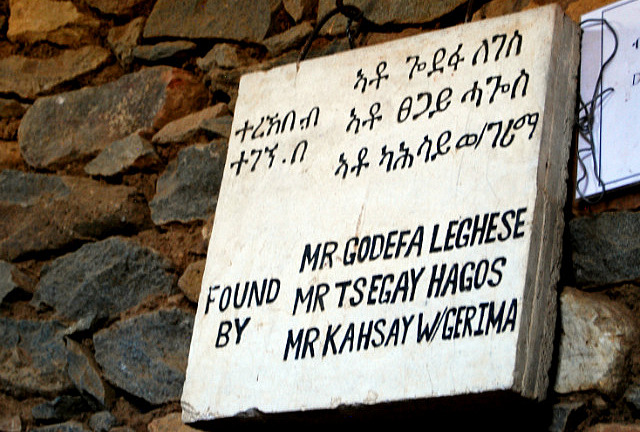 ኣቶ ጐደፋ ለገሰ
ተረኽበ ብ ኣቶ ፀጋይ ሓጐስ
ተገኝ.በ ኣቶ ካሕሳይ ወ/ገሪማ
MR GODEFA LEGHESE
FOUND MR TSEGAY HAGOS
BY MR KAHSAY W/GERIMA